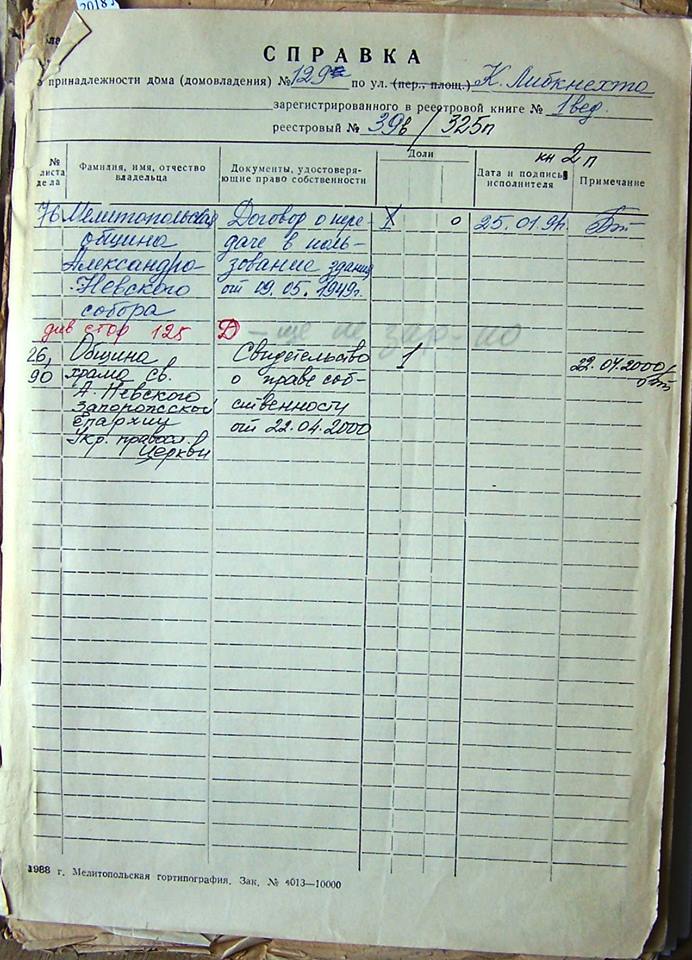 2018
СПРАВКА
принадлежности дома (домовладения) № 129 по ул. (пер., площ.) К. Либкнехта
зарегистрированного в реестровой книге № 1 вед.
реестровый № 39в / 325п
кн 2п
№ листа дела
Фамилия, имя, отчество владельца
Документы, удостоверяющие право собственности
Доли
Дата и подпись исполнителя
Примечание
76 Мелитопольская Договор о пере- X 0 25.01.91.
община даче в поль-
Александро- зование здания
Невского от 09.05.1949г.
собора
див стор 125 Д - ще не зар-но
26, Община Свидетельство 1 22.04.2000
90 храма св. о праве соб-
А. Невского ственности
Запорожской от 22.04.2000
епархии
Укр. правосл.
Церкви
1988 г. Мелитопольская гортипография. Зак. № 4013—10000